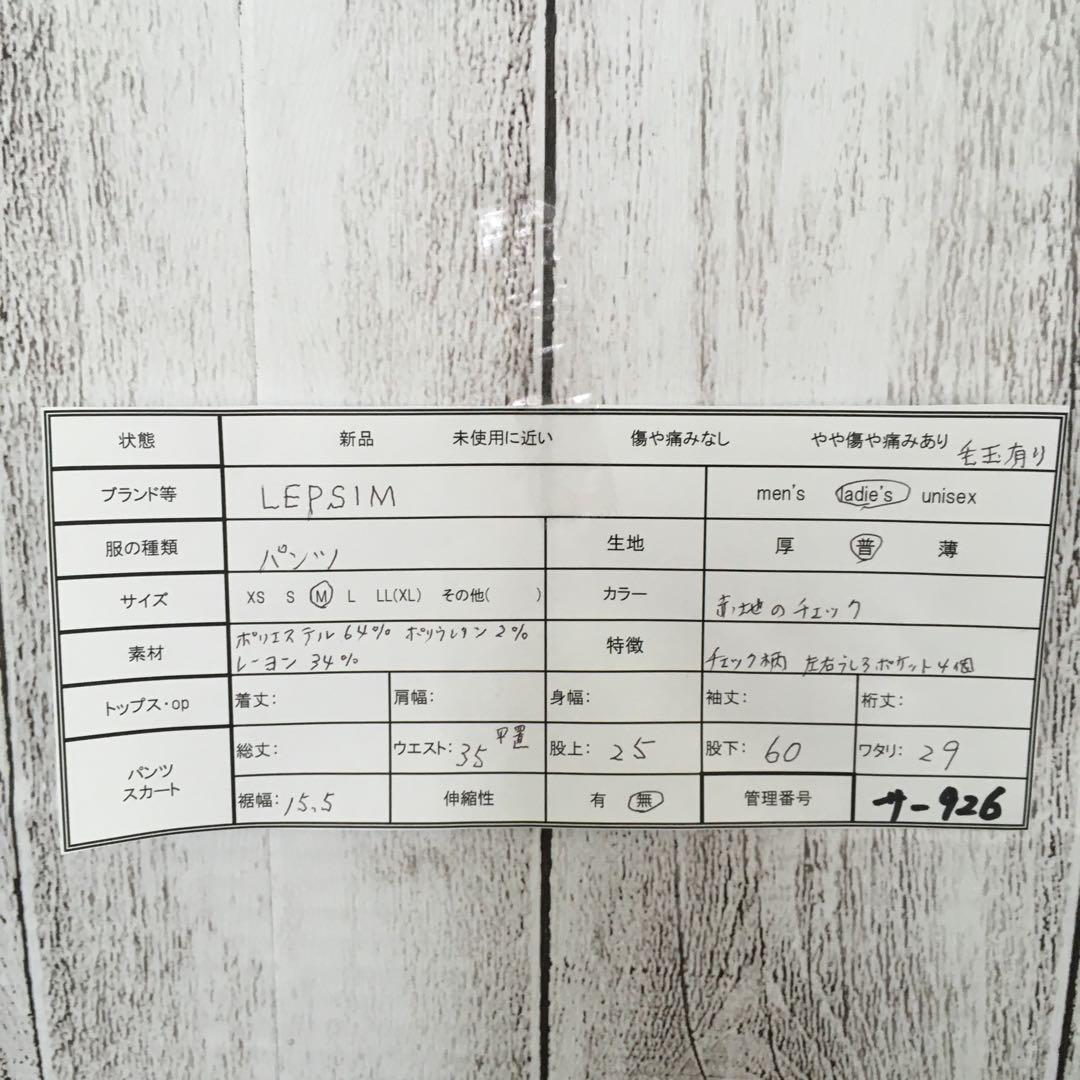 状態 新品 未使用に近い 傷や痛みなし やや傷や痛みあり 毛玉有り
ブランド等 LEPSIM men's ladie's unisex
服の種類 パンツ 生地 厚 普 薄
サイズ XS S M L LL(XL) その他( ) カラー 赤地のチェック
素材 ポリエステル64% ポリウレタン2%
レーヨン34% 特徴 チェック柄 左右うしろポケット4個
トップス・op 着丈: 肩幅: 身幅: 袖丈: 桁丈:
パンツ
スカート
総丈: ウエスト: 35 平置 股上: 25 股下: 60 ワタリ: 29
裾幅: 15.5 伸縮性 有 無 管理番号 サ-926